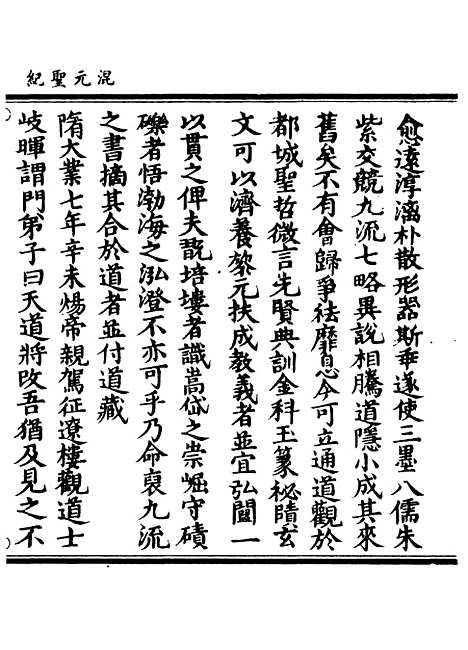 混元聖紀
愈遠淳漓朴散形器斯乖遂使三墨八儒朱
紫交競九流七略異說相騰道隱小成其來
舊矣不有會歸爭袪靡息今可立通道觀於
都城聖哲微言先賢典訓金科玉篆祕賾玄
文可以濟養黎元扶成教義者並宜弘闡一
以貫之俾夫翫培塿者識嵩岱之崇崛守磧
礫者悟渤海之泓澄不亦可乎乃命裒九流
之書摘其合於道者並付道藏
隋大業七年辛未煬帝親駕征遼樓觀道士
岐暉謂門弟子曰天道將改吾猶及見之不